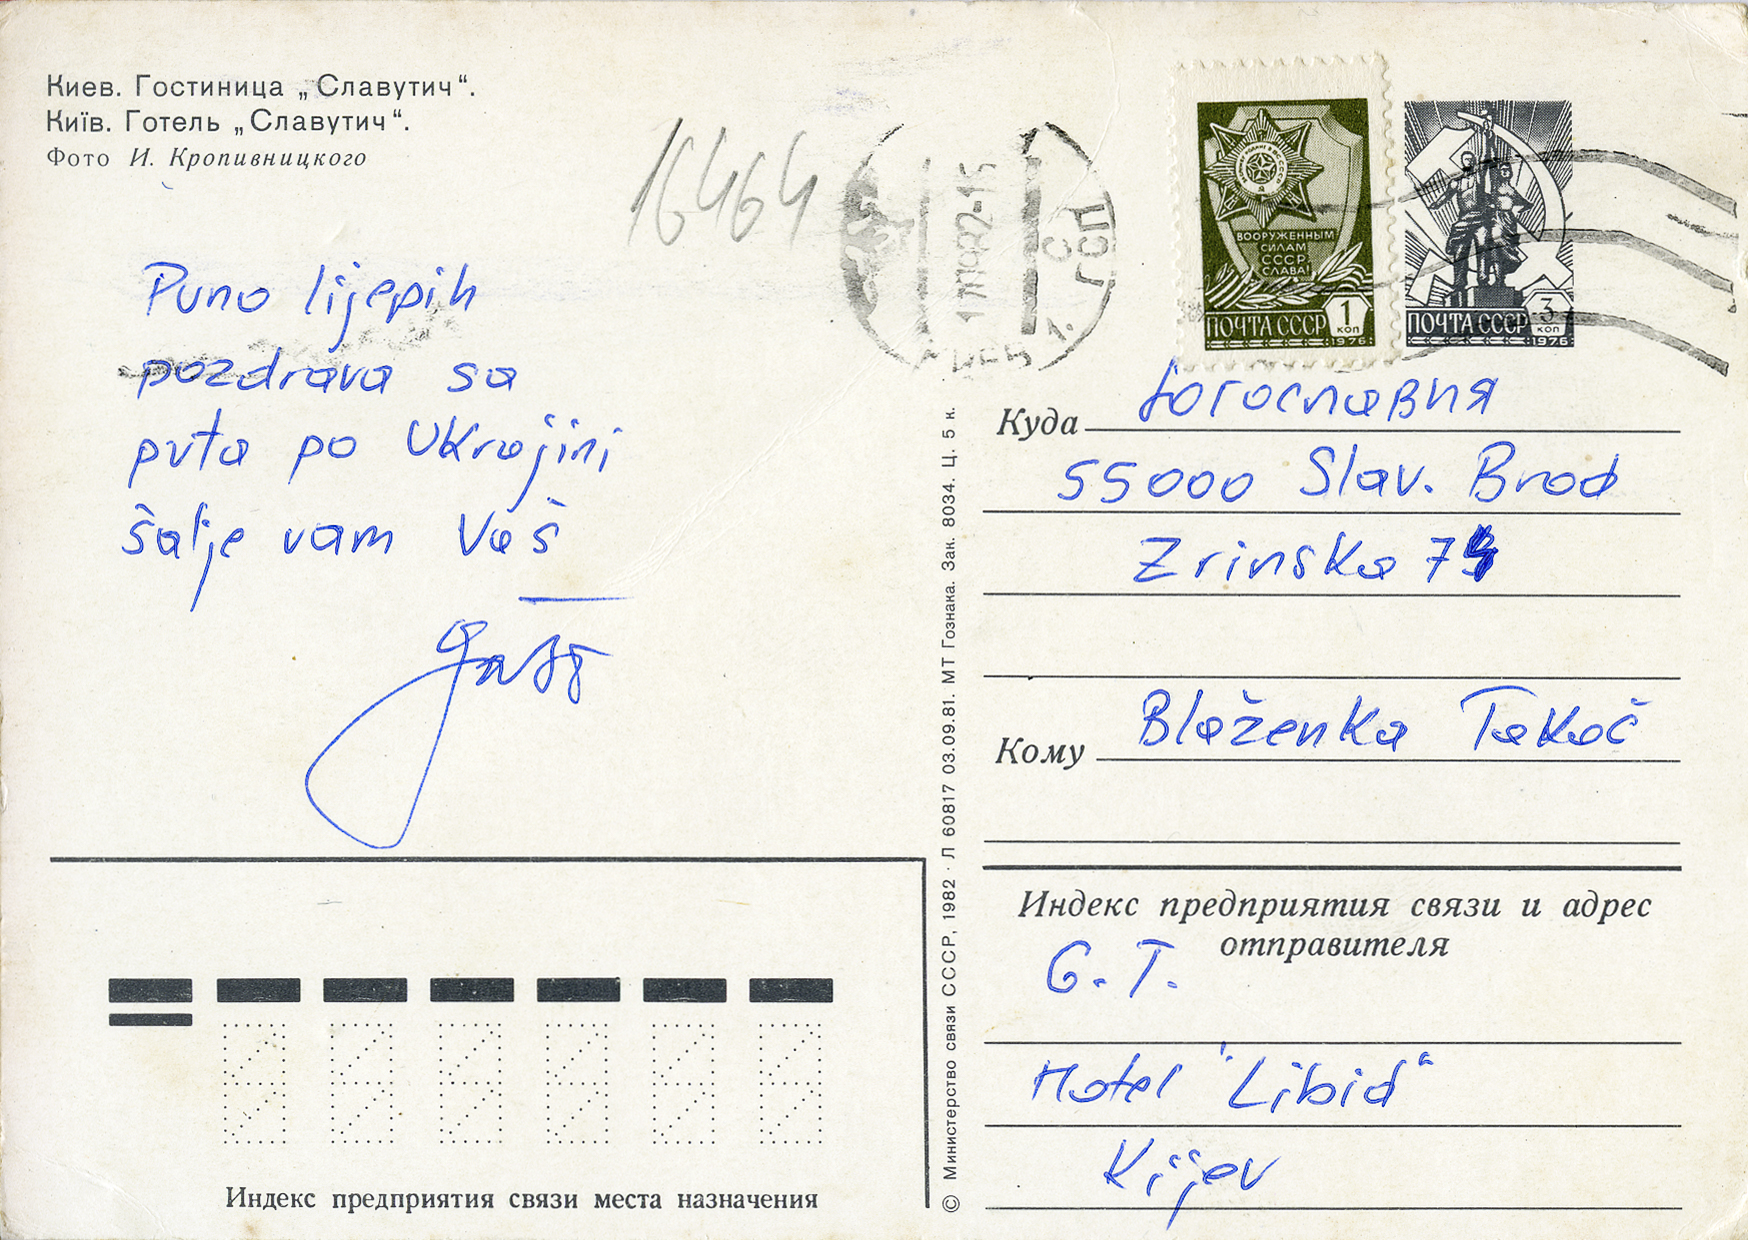 Киев. Гостиница „Славутич“.
Київ. Готель „Славутич“.
Фото И. Кропивницкого
16464
Puno lijepih
pozdrava sa
puta po Ukrajini
šalje vam Vaš
ВООРУЖЕННЫМ
СИЛАМ
СССР
СЛАВА!
ПОЧТА СССР 1 КОП
1976
ПОЧТА СССР 3 КОП
1976
Куда Југославия
55000 Slav. Brod
Zrinska 7
Кому Blaženka Takač
Индекс предприятия связи и адрес
отправителя
G. T.
Hotel "Libid"
Kijev
Индекс предприятия связи места назначения
© Министерство связи СССР, 1982 · Л 60817 03.09.81. МТ Гознака. Зак. 8034. Ц. 5 к.